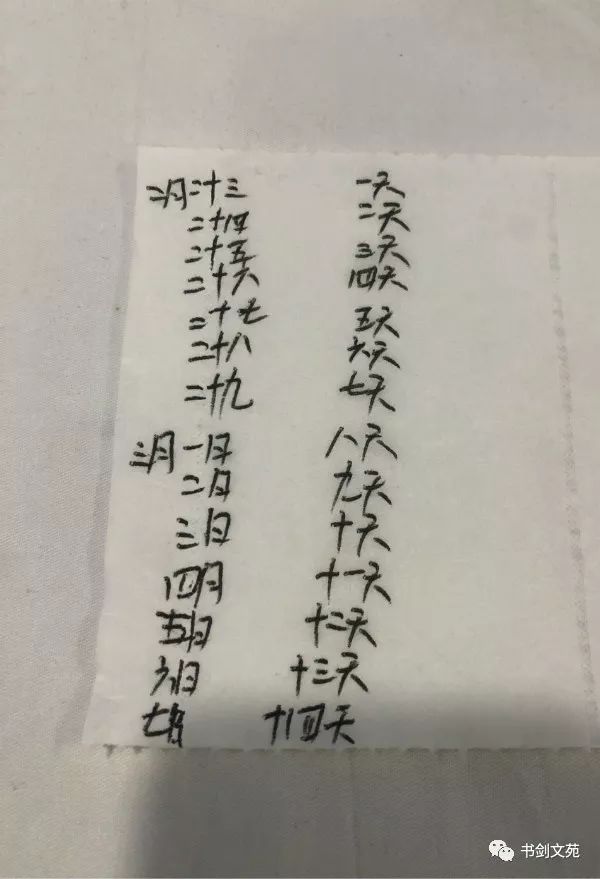 二月二十三 一天
二十四 二天
二十五 三天
二十六 四天
二十七 五天
二十八 六天
二十九 七天
三月一日 八天
二日 九天
三日 十天
四日 十一天
五日 十二天
六日 十三天
七日 十四天
书剑文苑